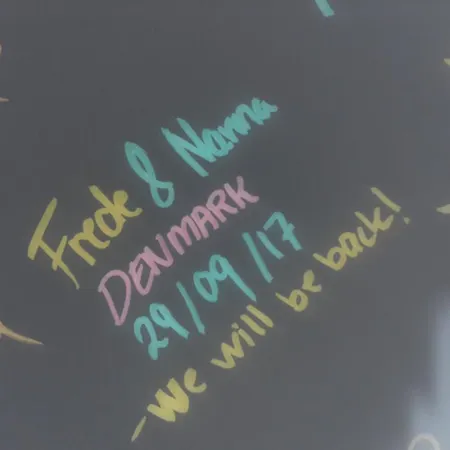 Frede & Nanna
DENMARK
29/09/17
-We will be back!